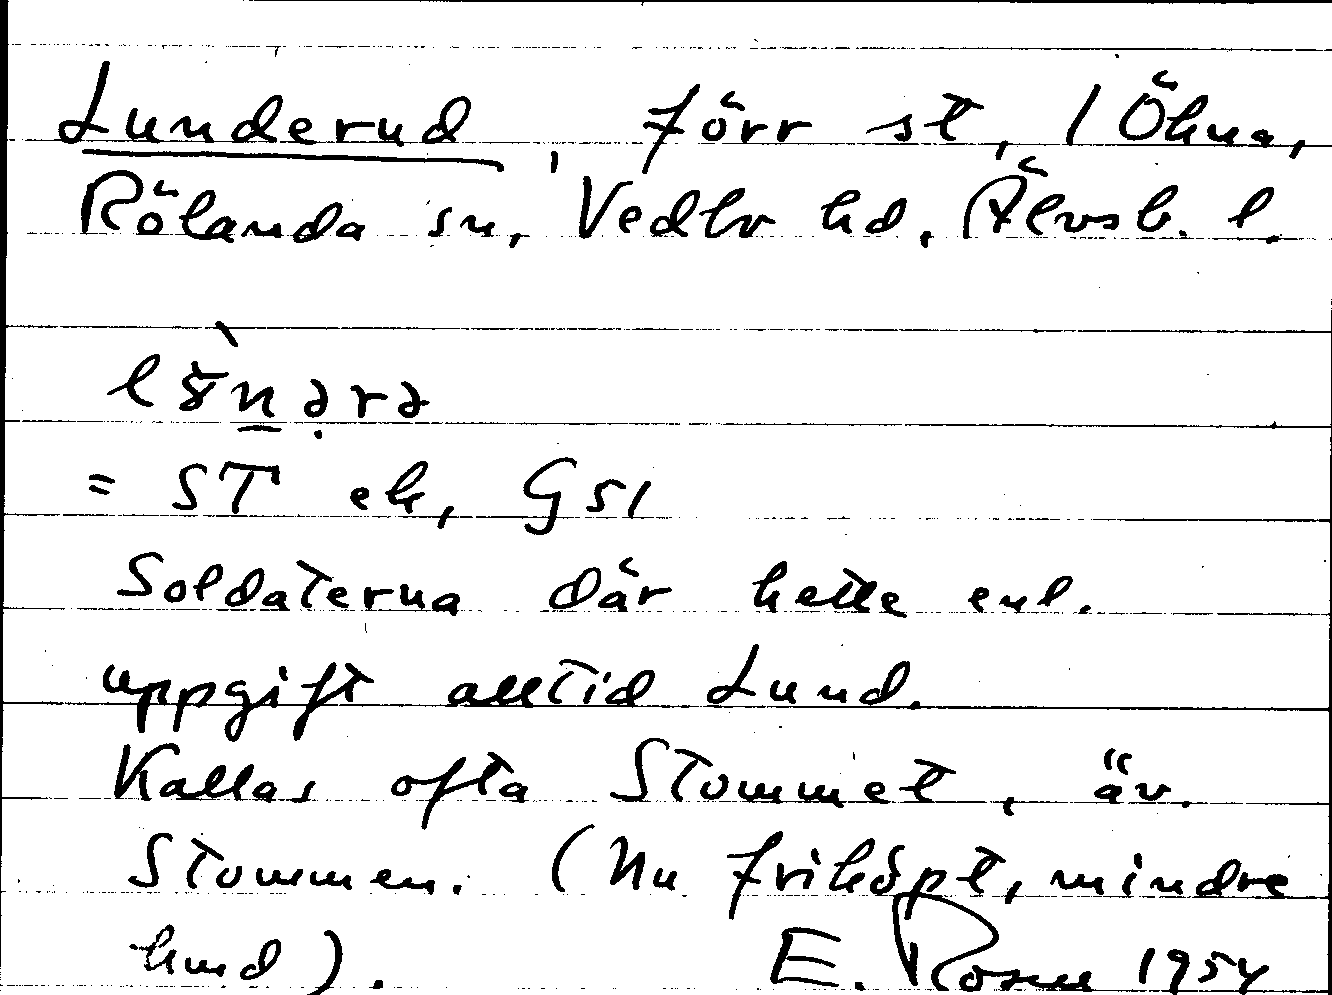 Lunderud, förr st, i Öhna,
Rölanda sn, Vedbo hd, Älvsb. l.
= ST ek, G51
Soldaterna där hette enl.
uppgift alltid Lund.
Kallas ofta Stommet, äv.
Stommen. (Nu friköpt, mindre
hmd). E. Rosen 1954